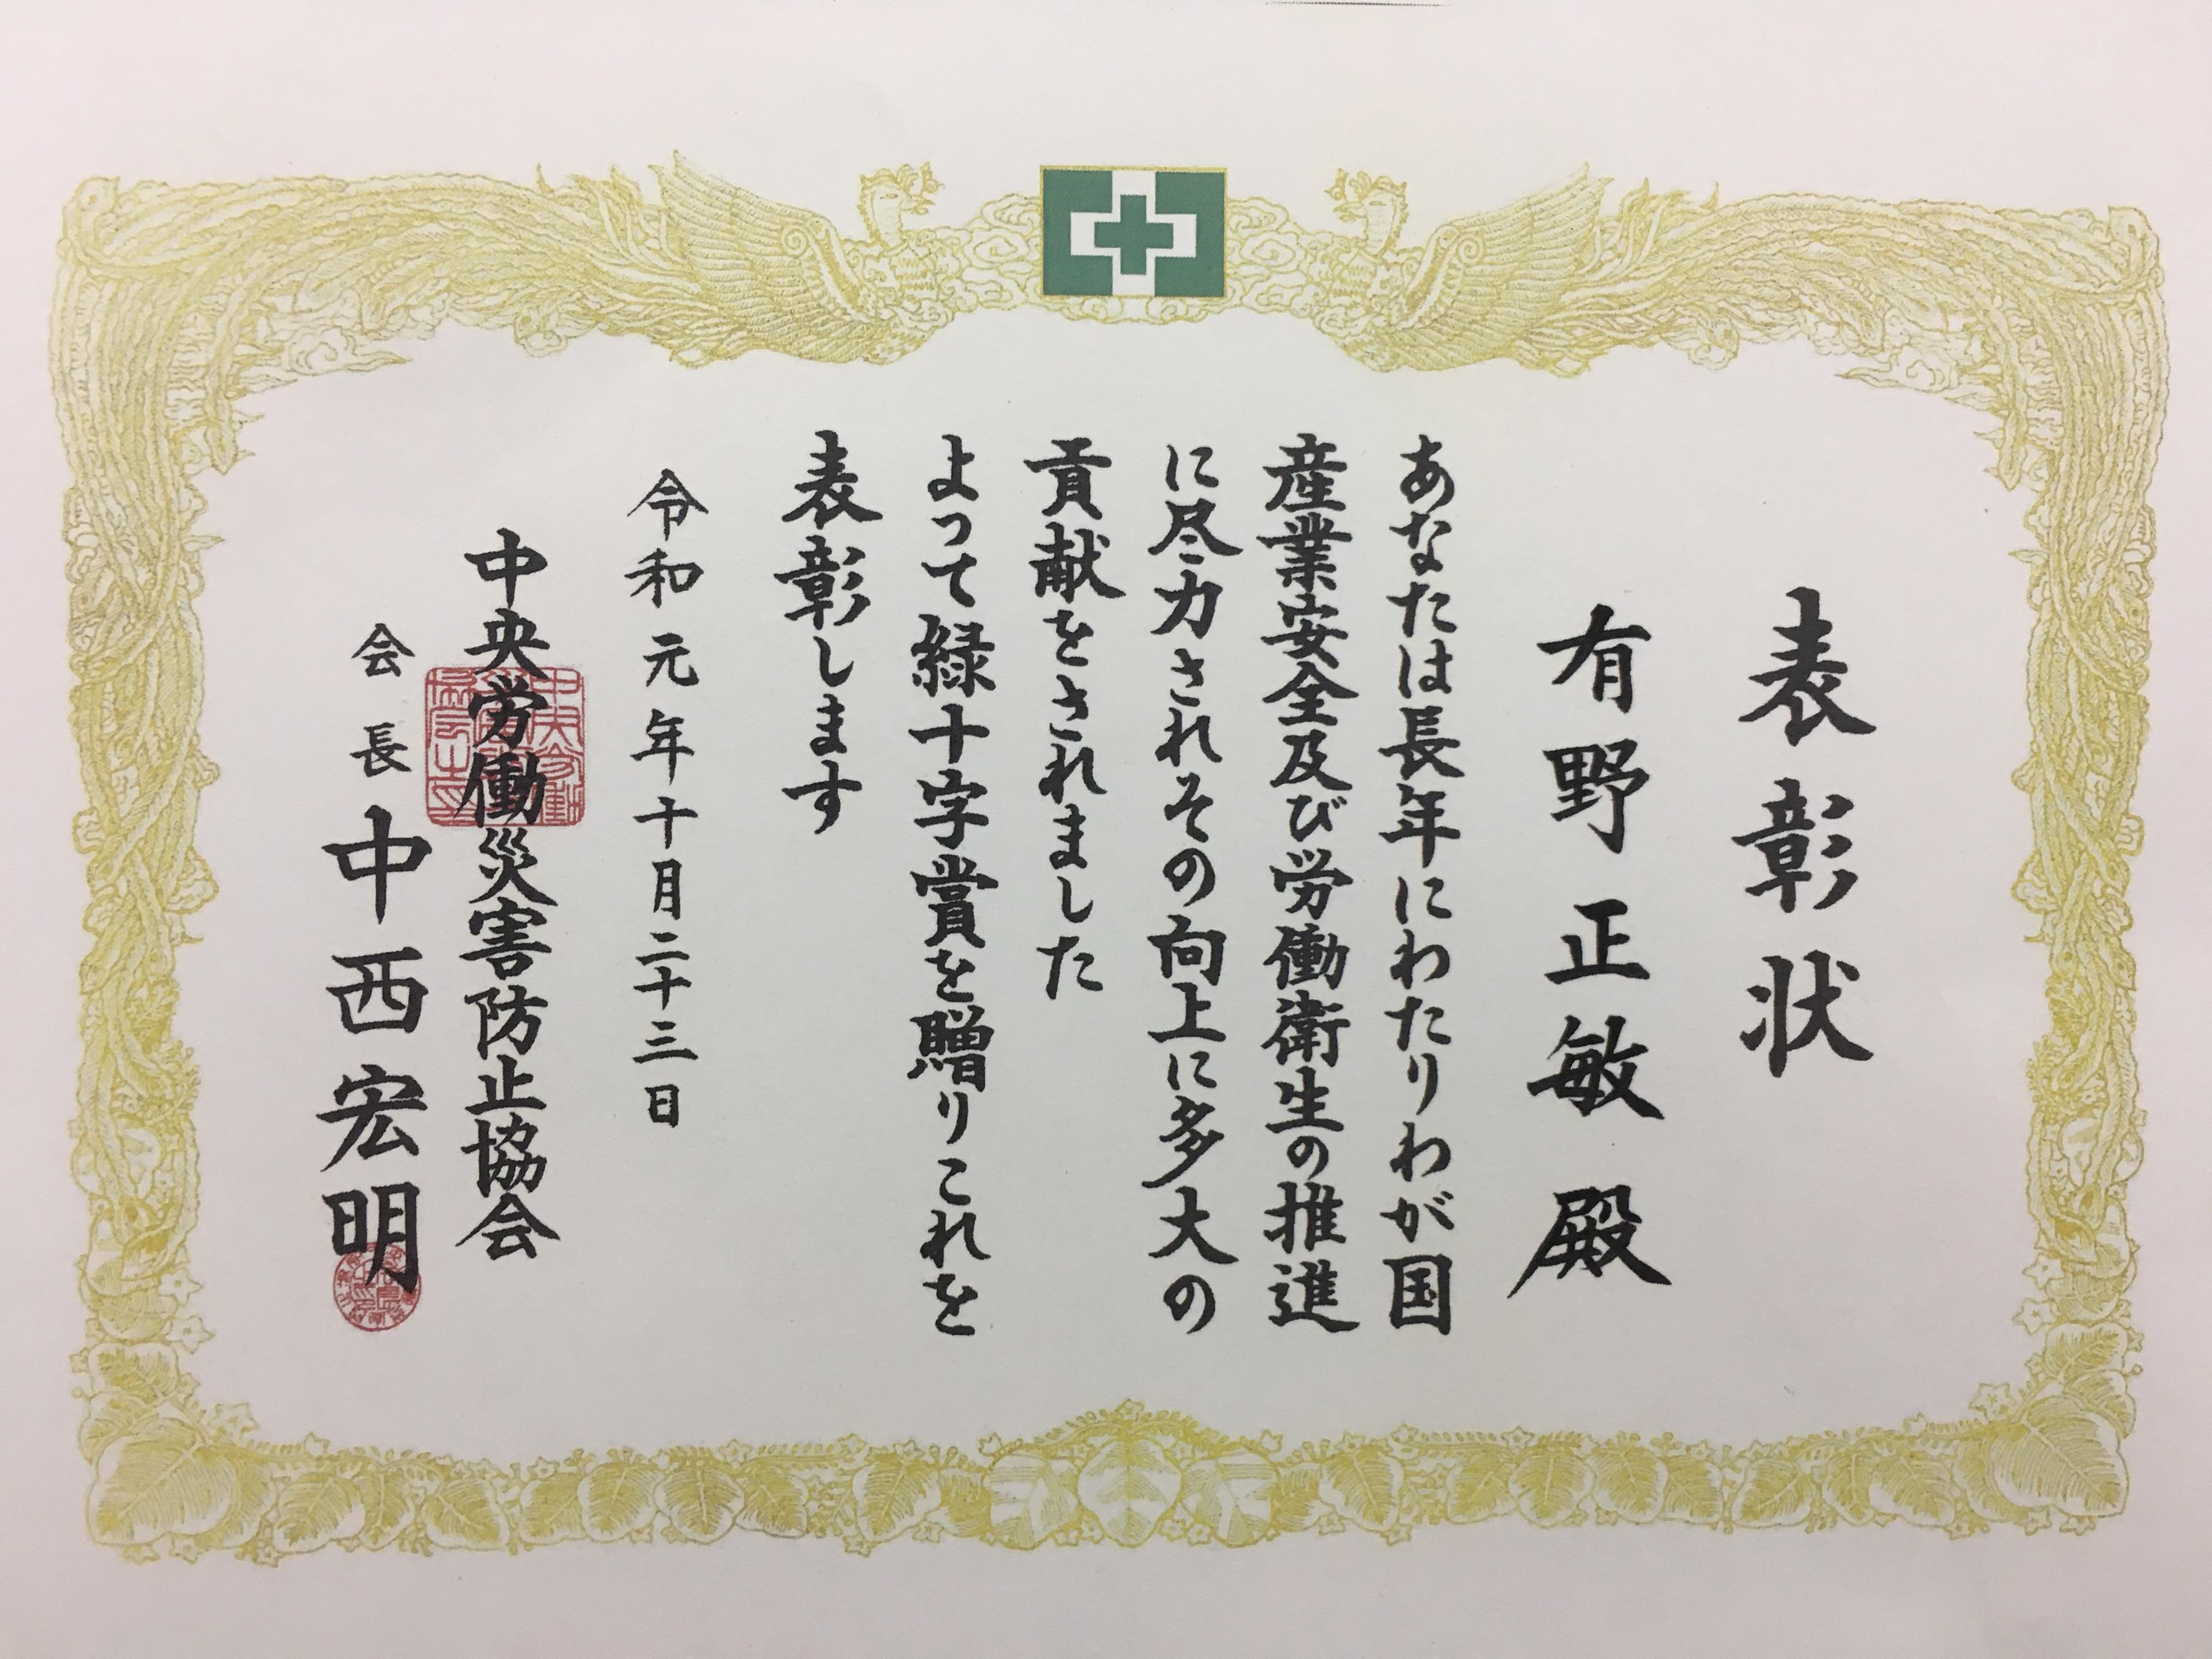 表彰状
有野正敏殿
あなたは長年にわたりわが国
産業安全及び労働衛生の推進
に尽力されその向上に多大の
貢献をされました
よって緑十字賞を贈りこれを
表彰します
令和元年十月二十三日
中央労働災害防止協会
会長 中西宏明